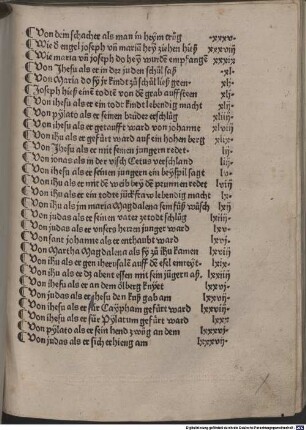 Von dem schacher als man in heym trůg .xxxv.
Wie ð engel joseph vñ mariã hey ziehen hieß xxxvij
Wie maria vñ joseph do hey wurdẽ empfangẽ xxxix
Von Jhesu als er in der juden schůl saß .xl.
Von Maria do sy jr kindt zů schůl ließ geen .xl.
Joseph hieß einẽ todtẽ von dẽ grab auff steen xlj.
Von ihesu als er ein todt kindt lebendig macht xlij.
Von pylato als er seinen brůder erschlůg xliij.
Von ihesu als er getaufft ward von johanne xlviij
Von ihũ als er gefůrt ward auff ein hohen berg xlix.
Von Jhesu als er mit seinen jungern redet .l.
Von ionas als in der visch Cetus verschland lij.
Von ihesu als er seinen jungern ein beyspil sagt lv.
Von ihũ als er mit dẽ weib bey dẽ prunnen redet lviij
Von ihũ als er ein todtes jůckfraw lebendig macht lx.
Von ihũ als jm maria Magdalena sein fůß wůsch lxj.
Von judas als er seinen vater ze todt schlůg lxiij.
Von judas als er vnsers herren junger ward lxv.
Von sant johanne als er enthaubt ward lxvj.
Von Martha Magdalena als sy zů ihũ kamen lxviij
Von ihũ als er gen iherusalẽ auff dẽ esel einreyt lxix.
Von ihũ als er dz abent essen mit sein jůgern aß. lxxiij
Von ihesu als er an dem ölberg knyet lxxvij.
Von judas als er ihesu den kuß gab am lxxviij.
Von ihesu als er für Caypham gefůrt ward lxxviij
Von ihesu als er für Pylatum gefůrt ward lxxx
Von pylato als er sein hend zwůg an dem lxxxvj.
Von judas als er sich erhieng am lxxxvij.